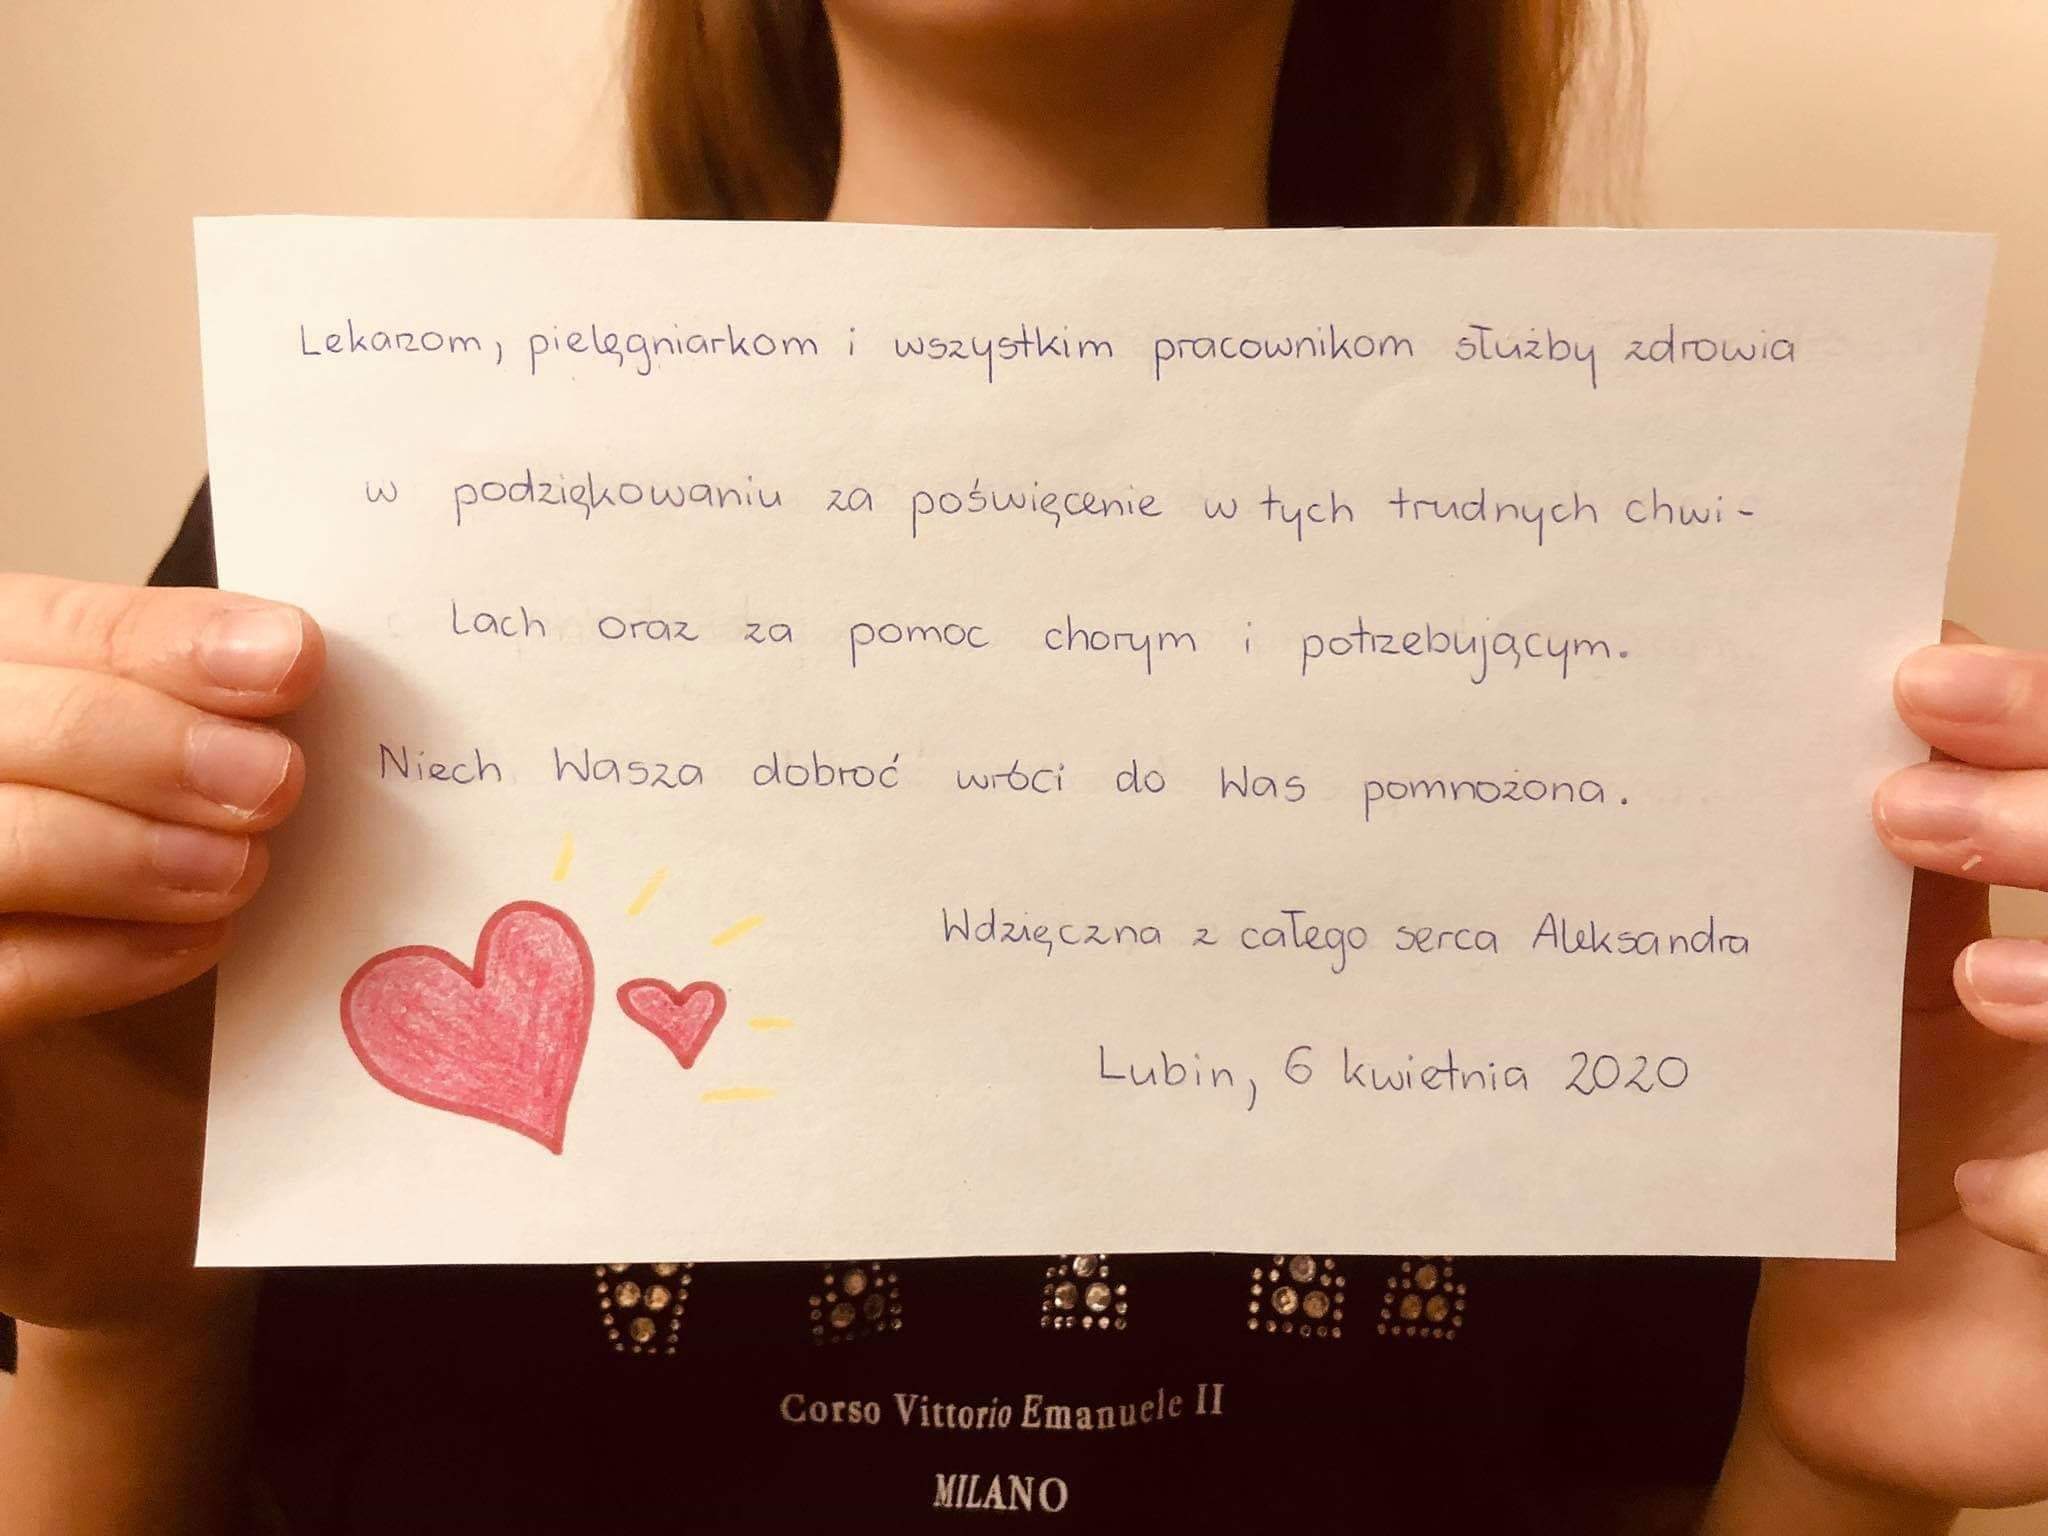 Lekarzom, pielęgniarkom i wszystkim pracownikom służby zdrowia
w podziękowaniu za poświęcenie w tych trudnych chwi-
lach oraz za pomoc chorym i potrzebującym.
Niech Wasza dobroć wróci do Was pomnożona.
Wdzięczna z całego serca Aleksandra
Lubin, 6 kwietnia 2020
Corso Vittorio Emanuele II
MILANO